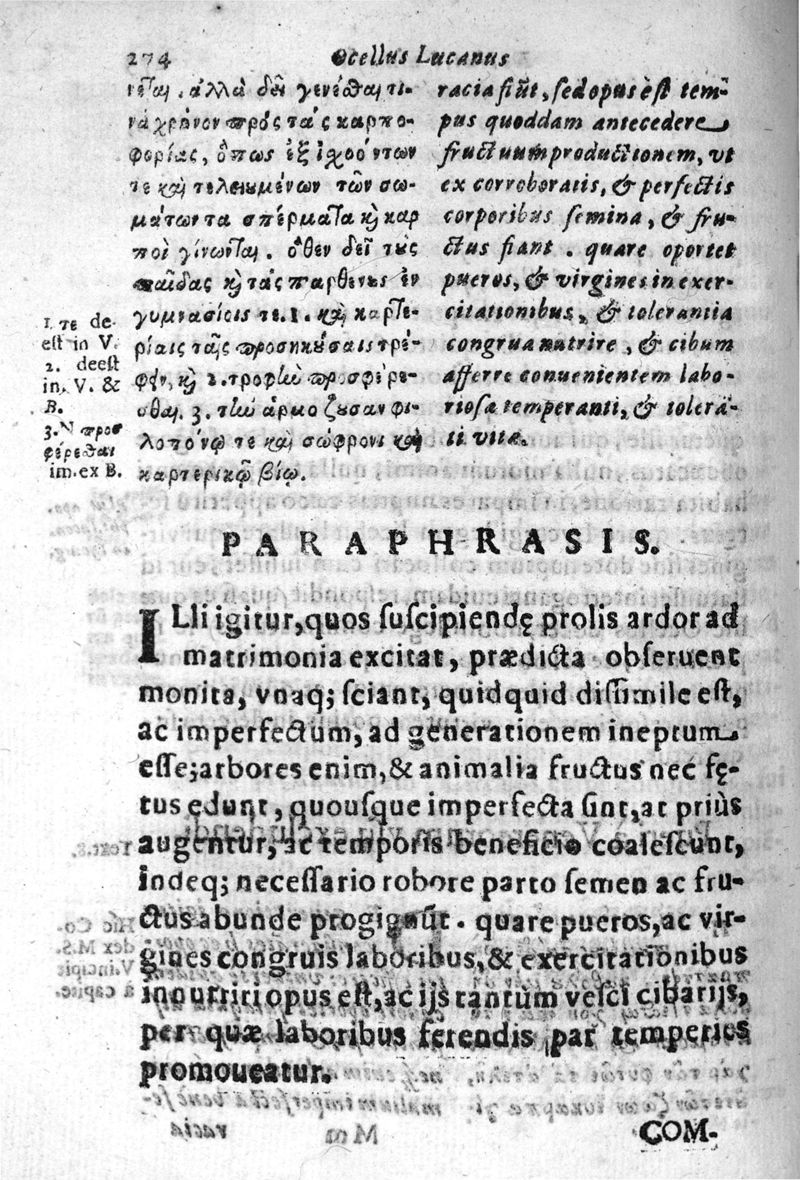 274
Ocellus Lucanus
νεται. ἀλλὰ δεῖ γενέσθαι τι-
νὰ χρήνον πρός τὰς καρπο-
φορίας, ὅπως ἐξ ἰχοόντων
τε καὶ τελειωμένων τῶν σω-
μάτων τα σπέρματα κὶ καρ
ποὶ γίνωνται. ὅθεν δεῖ τοὺς
παῖδας κὶ τὰς παρθένους ἐν
γυμνασίοις τε. 1. καὶ καρτε-
ρίαις ταῖς προσηκούσαις τρέ-
φειν, κὶ 2. τροφὼ προσφέρε-
σθαι. 3. τὼ ἁρμόζουσαν φι-
λοπόνῳ τε καὶ σώφρονι καὶ
καρτερικῷ βίῳ.
racia fiūt, sed opus èst tem-
pus quoddam antecedere
fructuum productionem, vt
ex corroboratis, & perfectis
corporibus semina, & fru-
ctus fiant. quare oportet
pueros, & virgines in exer-
citationibus, & tolerantia
congrua nutrire, & cibum
afferre conuenientem labo-
riosa temperanti, & tolerā-
ti vitæ.
1. τε de-
est in V.
2. deest
in. V. &
B.
3. N προσ
φέρεσθαι
im. ex B.
PARAPHRASIS.
ILli igitur, quos suscipiendę prolis ardor ad
matrimonia excitat, prædicta obseruent
monita, vnaq; sciant, quidquid dissimile est,
ac imperfectum, ad generationem ineptum
esse; arbores enim, & animalia fructus nec fę-
tus edunt, quousque imperfecta sint, at priùs
augentur, ac temporis beneficio coalescunt,
indeq; necessario robore parto semen ac fru-
ctus abunde progignūt. quare pueros, ac vir-
gines congruis laboribus, & exercitationibus
innutriri opus est, ac ijs tantùm vesci cibarijs,
per quæ laboribus ferendis par temperies
promoueatur.
COM-